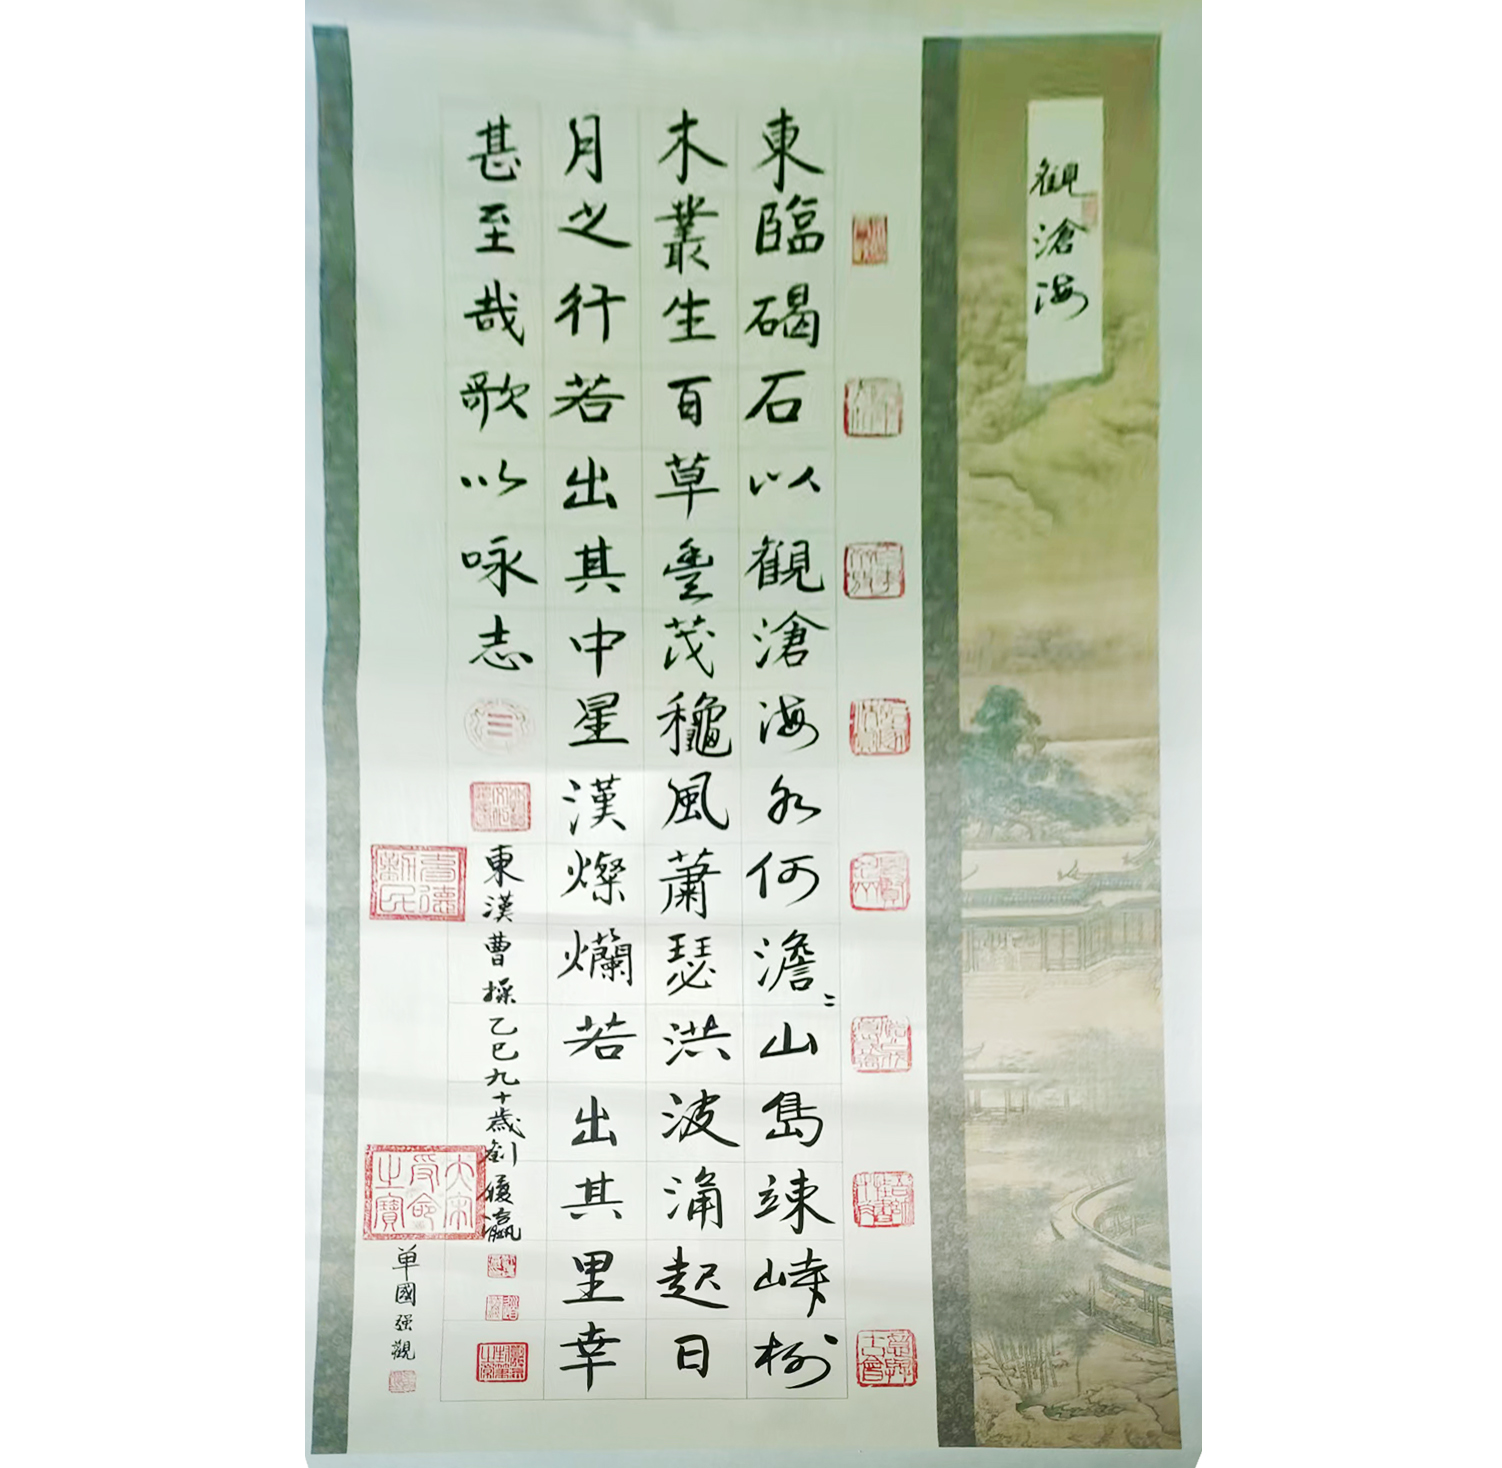 觀滄海
東臨碣石以觀滄海水何澹〻山島竦峙樹
木叢生百草豐茂穐風蕭瑟洪波涌起日
月之行若出其中星漢燦爛若出其里幸
甚至哉歌以咏志
東漢曹操乙巳九十歲劉瀛
大宋受命之寶
单國强觀